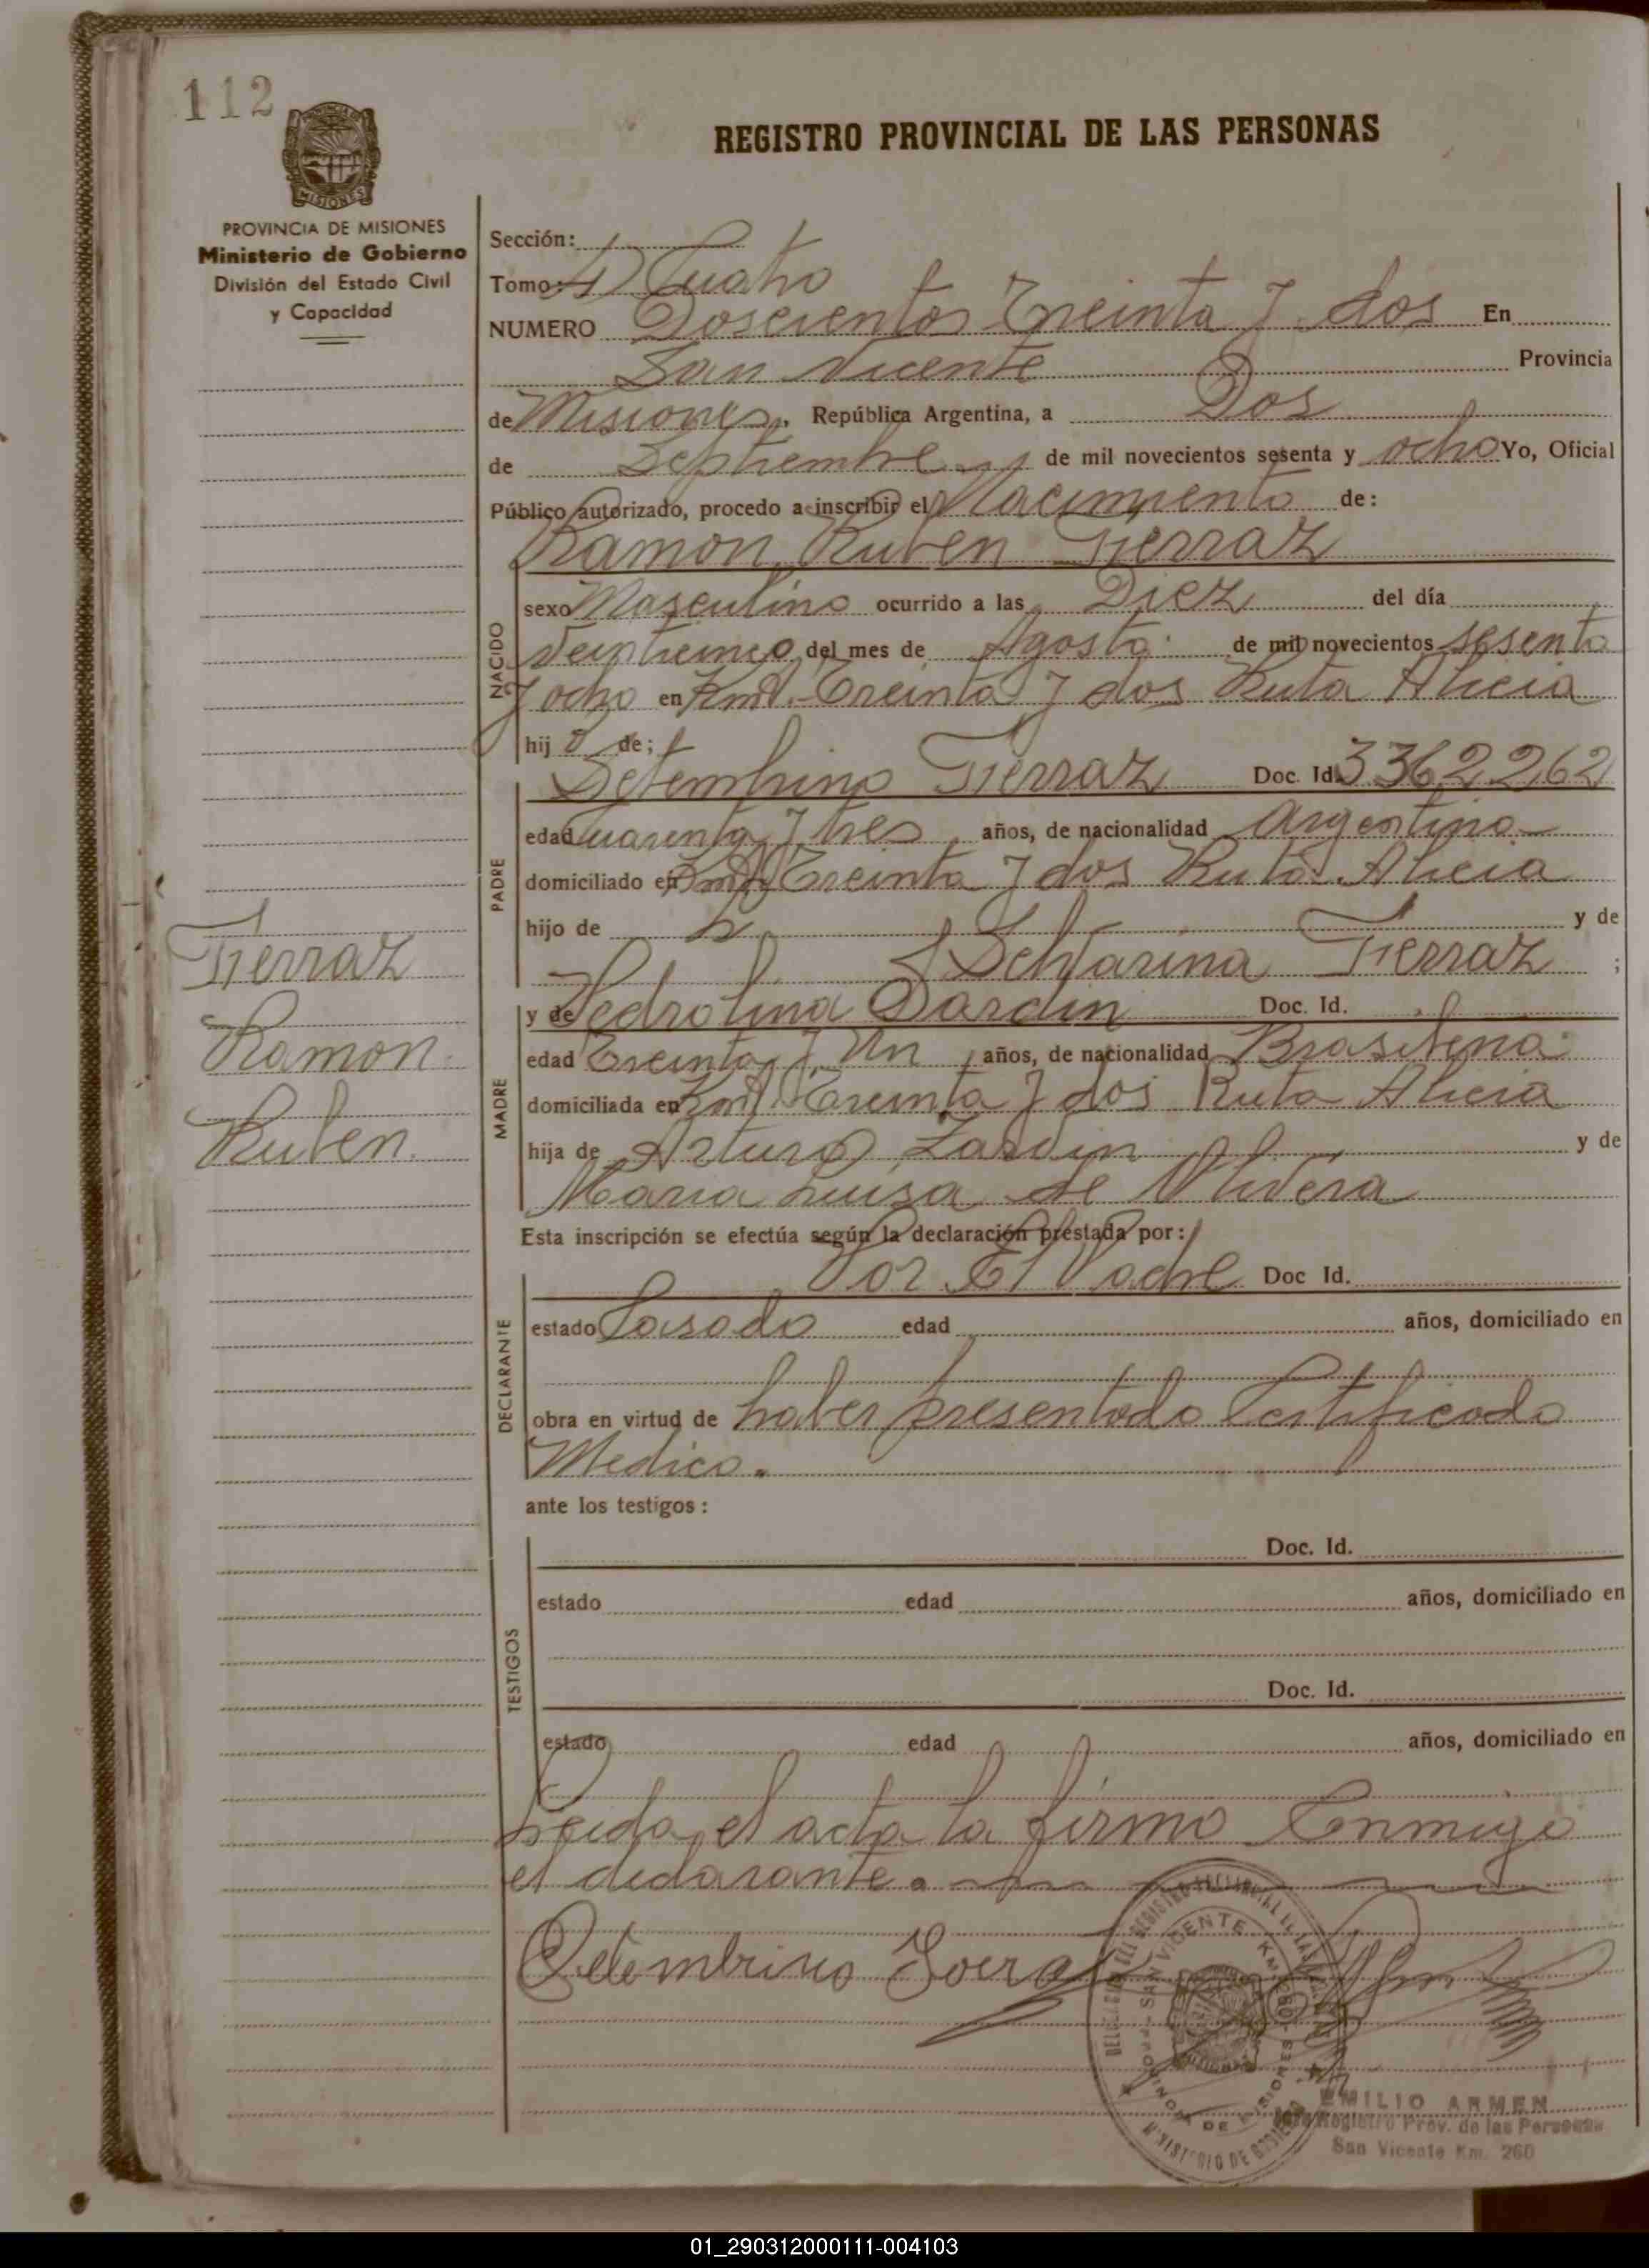 112
REGISTRO PROVINCIAL DE LAS PERSONAS
MISIONES
PROVINCIA DE MISIONES
Ministerio de Gobierno
División del Estado Civil
y Capacidad
Sección:
Tomo: 4) Cuatro
NUMERO Doscientos Treinta y dos En
San Vicente Provincia
de Misiones, República Argentina, a Dos
de Septiembre de mil novecientos sesenta y ocho Yo, Oficial
Público autorizado, procedo a inscribir el Nacimiento de:
Ramon Ruben Fierraz
NACIDO
sexo Masculino ocurrido a las Diez del día
del mes de Agosto de mil novecientos sesenta
y ocho en Km. Treinta y dos Ruta Alicia
hijo de;
Setembrino Fierraz Doc. Id. 3362262
PADRE
edad Cuarenta y tres años, de nacionalidad Argentino
domiciliado en Km. Treinta y dos Ruta Alicia
hijo de y de
Fierraz ;
Fierraz
Ramon
Ruben.
MADRE
y de Pedrolina Doc. Id.
edad Treinta y Un años, de nacionalidad Brasileña
domiciliada en Km. Treinta y dos Ruta Alicia
hija de Arturo Zardin y de
Maria Luisa de
Esta inscripción se efectúa según la declaración prestada por:
DECLARANTE
Por El Padre Doc Id.
estado Casado edad años, domiciliado en
obra en virtud de haber presentado Certificado
Medico.
ante los testigos:
TESTIGOS
Doc. Id.
estado edad años, domiciliado en
Doc. Id.
estado edad años, domiciliado en
Leida el acta la firmo Conmigo
el declarante.
SAN VICENTE KM.
EMILIO ARMEN
Registro Prov. de las Personas
San Vicente Km. 260
01_290312000111-004103